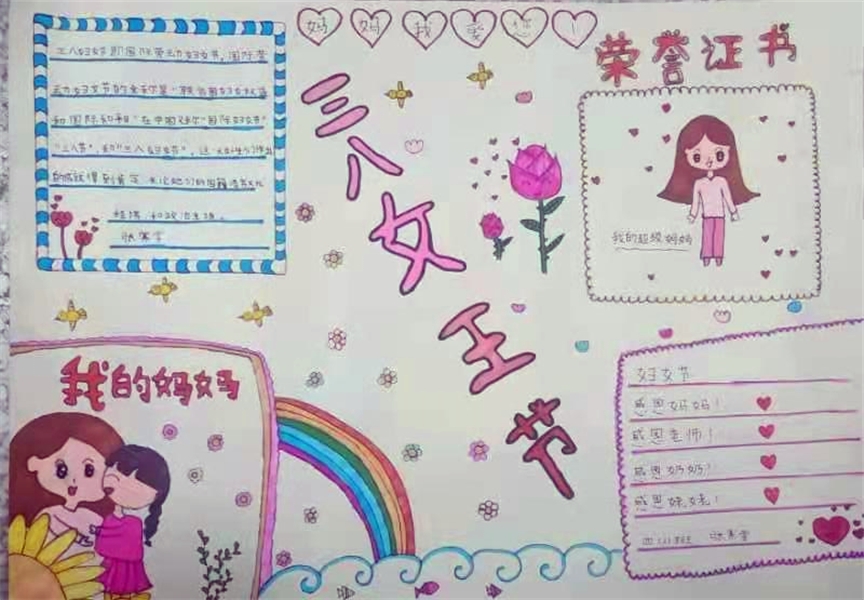 妈妈我爱您！
三八女王节
荣誉证书
三八妇女节即国际劳动妇女节，国际劳
动妇女节的全称是"联合国妇女权益
和国际和平
"三八节"和"三八妇女节"，
的成就得到肯定，无论她们的国籍
经济和政治主张。
我的超级妈妈
我的妈妈
妇女节
感恩妈妈！
感恩老师！
感恩奶奶！
感恩姥姥！